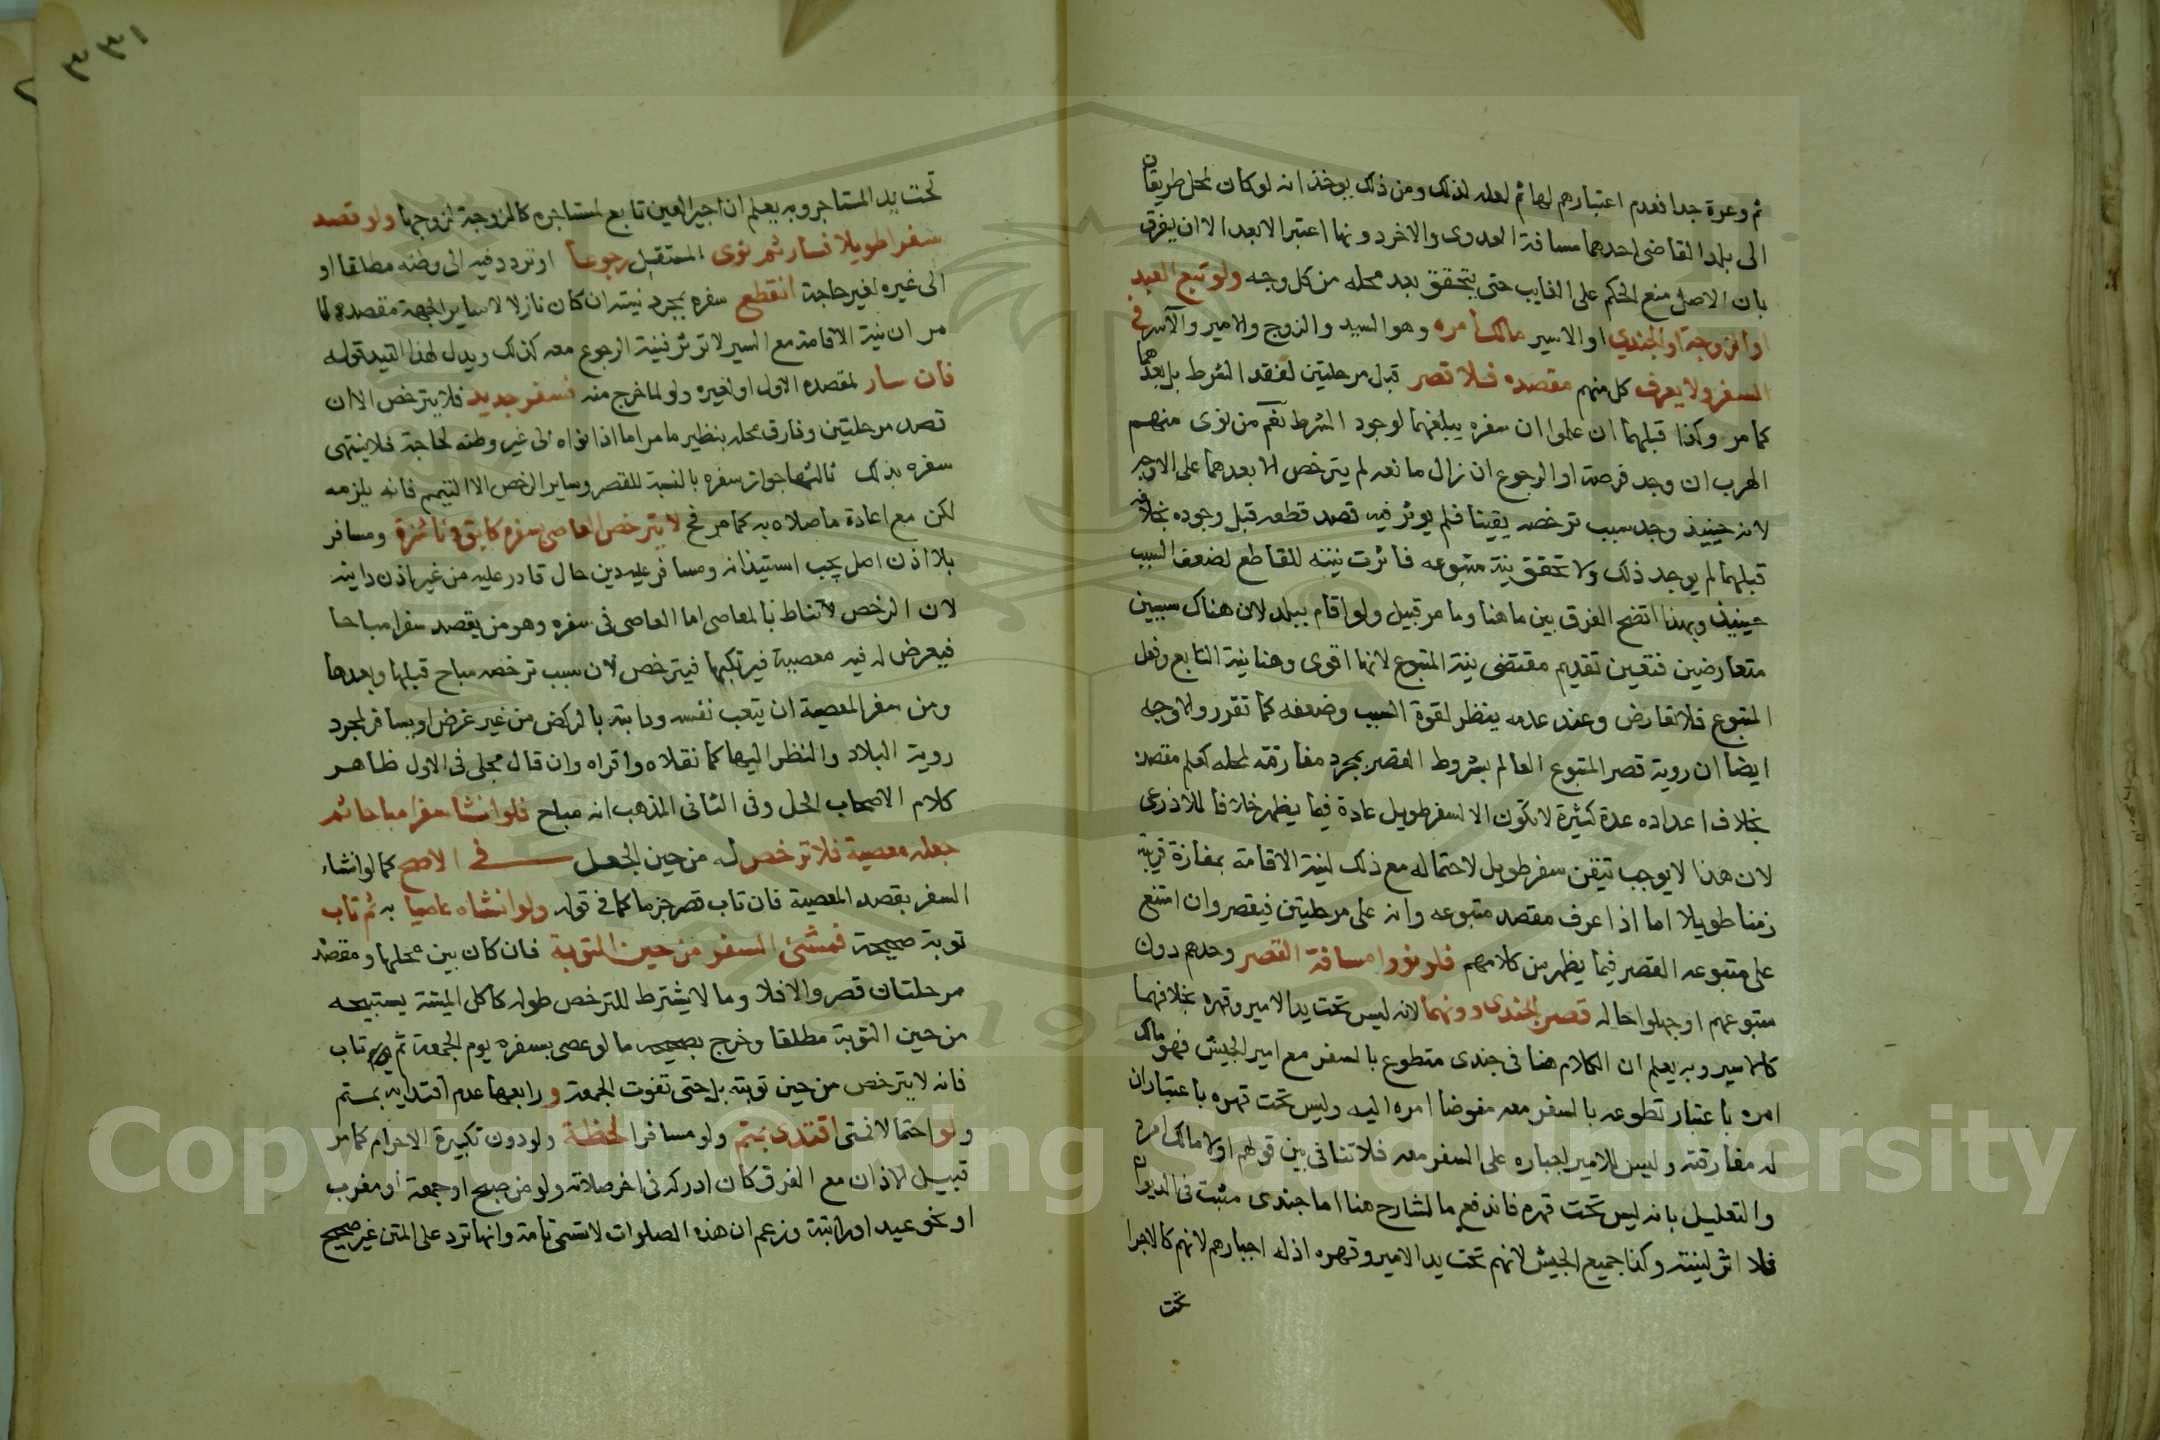 ثم وعرة جدا فعدم اعتبارهم لها ثم لعله لذلك ومن ذلك يوخذ انه لو كان لمحل طريقان
الى بلد القاضى احدهما مسافة العدوى والاخر دونها اعتبر الابعد الا ان يفرق
بان الاصل منع الحكم على الغايب حتى يتحقق بعد محله من كل وجه ولو تبع العبد
او الزوجة او الجندي او الاسير مالك امره وهو السيد والزوج والامير والآسر في
السفر ولا يعرف كل منهم مقصده فلا قصر قبل مرحلتين لفقد الشرط بل بعدهما
كما مر وكذا قبلهما ان علموا ان سفره يبلغهما لوجود الشرط نعم من نوى منهم
الهرب ان وجد فرصة او الرجوع ان زال مانعه لم يترخص الا بعدهما على الاوجه
لانه حينيذ وجد سبب ترخصه يقينا فلم يوثر فيه قصد قطعه قبل وجوده بخلافه
قبلهما لم يوجد ذلك ولا تحقق نية متبوعه فاثرت نيته للقاطع لضعف السبب
حينيذ وبهذا اتضح الفرق بين ما هنا وما مر قبيل ولو اقام ببلد لان هناك سببين
متعارضين فتعين تقديم مقتضى نية المتبوع لانها اقوى وهنا نية التابع وفعل
المتبوع فلا تعارض وعند عدمه ينظر لقوة السبب وضعفه كما تقرر والاوجه
ايضا ان روية قصر المتبوع العالم بشروط القصر بمجرد مفارقته لمحله كعلم مقصده
بخلاف اعداده عدة كثيرة لا تكون الا لسفر طويل عادة فيما يظهر خلافا للاذرعى
لان هذا لا يوجب تيقن سفر طويل لاحتماله مع ذلك لنية الاقامة بمفازة قريبة
زمنا طويلا اما اذا عرف مقصد متبوعه وانه على مرحلتين فيقصر وان امتنع
على متبوعه القصر فيما يظهر من كلامهم فلو نووا مسافة القصر وحدهم دون
متبوعهم او جهلوا حاله قصر الجندى دونهما لانه ليس تحت يد الامير وقهره بخلافهما
كالاسير وبه يعلم ان الكلام هنا فى جندى متطوع بالسفر مع امير الجيش فهو مالك
امره باعتبار تطوعه بالسفر معه مفوضا امره اليه وليس تحت قهره باعتبار ان
له مفارقته وليس للامير اجباره على السفر معه فلا تنافى بين قولهم اولا مالك امره
والتعليل بانه ليس تحت قهره فاندفع ما للشارح هنا اما جندى مثبت فى الديوان
فلا اثر لنيته وكذا جميع الجيش لانهم تحت يد الامير وقهره اذ له اجبارهم لانهم كالاجرا
تحت
٣٣١
تحت يد المستاجر وبه يعلم ان اجير العين تابع لمستاجره كالزوجة لزوجها ولو قصد
سفرا طويلا فسار ثم نوى المستقبل رجوعا او تردد فيه الى وطنه مطلقا او
الى غيره لغير حاجة انقطع سفره بمجرد نيته ان كان نازلا لا سايرا لجهة مقصده لما
مر ان نية الاقامة مع السير لا توثر فنية الرجوع معه كذلك ويدل لهذا التييد قوله
فان سار لمقصده الاول او لغيره ولو لما خرج منه فسفر جديد فلا يترخص الا ان
قصد مرحلتين وفارق محله بنظير ما مر اما اذا نواه الى غير وطنه لحاجة فلا ينتهى
سفره بذلك ثالثها جواز سفره بالنسبة للقصر وساير الرخص الا التيمم فانه يلزمه
لكن مع اعادة ما صلاه به كما مر فح لا يترخص العاصى بسفره كابق وناشزة ومسافر
بلا اذن اصل يجب استيذانه ومسافر عليه دين حال قادر عليه من غير اذن داينه
لان الرخص لا تناط بالمعاصى اما العاصى فى سفره وهو من يقصد سفرا مباحا
فيعرض له فيه معصية فيرتكبها فيترخص لان سبب ترخصه مباح قبلها وبعدها
ومن سفر المعصية ان يتعب نفسه ودابته بالركض من غير غرض او يسافر لمجرد
روية البلاد والنظر اليها كما نقلاه واقراه وان قال مجلى فى الاول ظاهر
كلام الاصحاب الحل وفى الثانى المذهب انه مباح فلو انشا سفرا مباحا ثم
جعله معصية فلا ترخص له من حين الجعل في الاصح كما لو انشاء
السفر بقصد المعصية فان تاب قصر جزما كما فى قوله ولو انشاه عاصيا به ثم تاب
توبة صحيحة فمنشئ السفر من حين التوبة فان كان بين محلها ومقصده
مرحلتان قصر والا فلا وما لا يشترط للترخص طوله كاكل الميتة يستبيحه
من حين التوبة مطلقا وخرج بصحيحة ما لو عصى بسفره يوم الجمعة ثم تاب
فانه لا يترخص من حين توبته بل حتى تفوت الجمعة و رابعها عدم اقتدايه بمتم
ولو احتمالا فمتى اقتدى بمتم ولو مسافرا لحظة ولو دون تكبيرة الاحرام كما مر
قبيل الاذان مع الفرق كان ادركه فى اخر صلاته ولو من صبح او جمعة او مغرب
او نحو عيد او راتبة وزعم ان هذه الصلوات لا تسمى تامة وانها ترد على المتن غير صحيح
Copyright © King Saud University